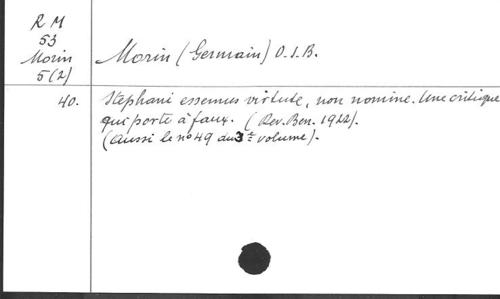 R M
53
Morin
5(2)
Morin (Germain) O.S.B.
40. Stephani essemus virtute, non nomine. Une critique
qui porte à faux. (Rev. Ben. 1922).
(Aussi le nº 49 du 3e volume).